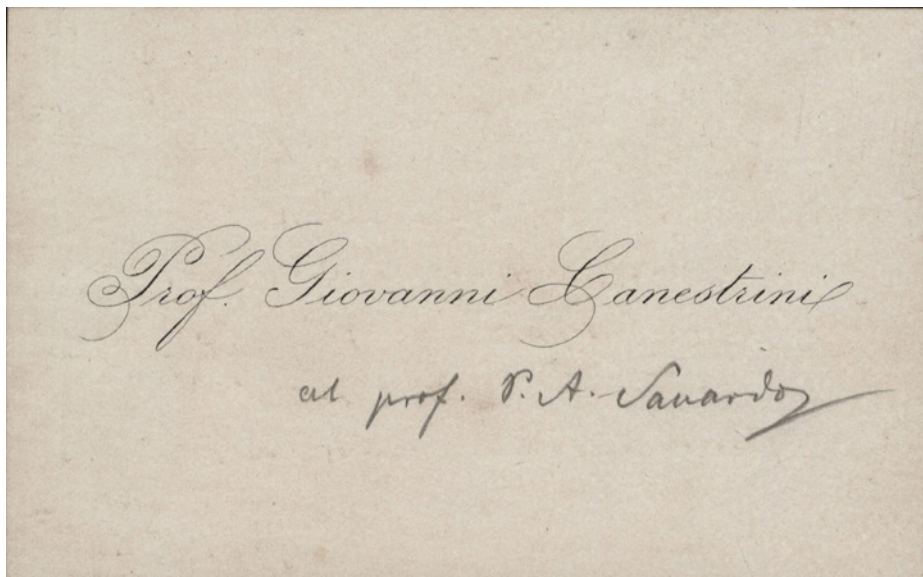 Prof. Giovanni Canestrini
al prof. P. A. Saccardo